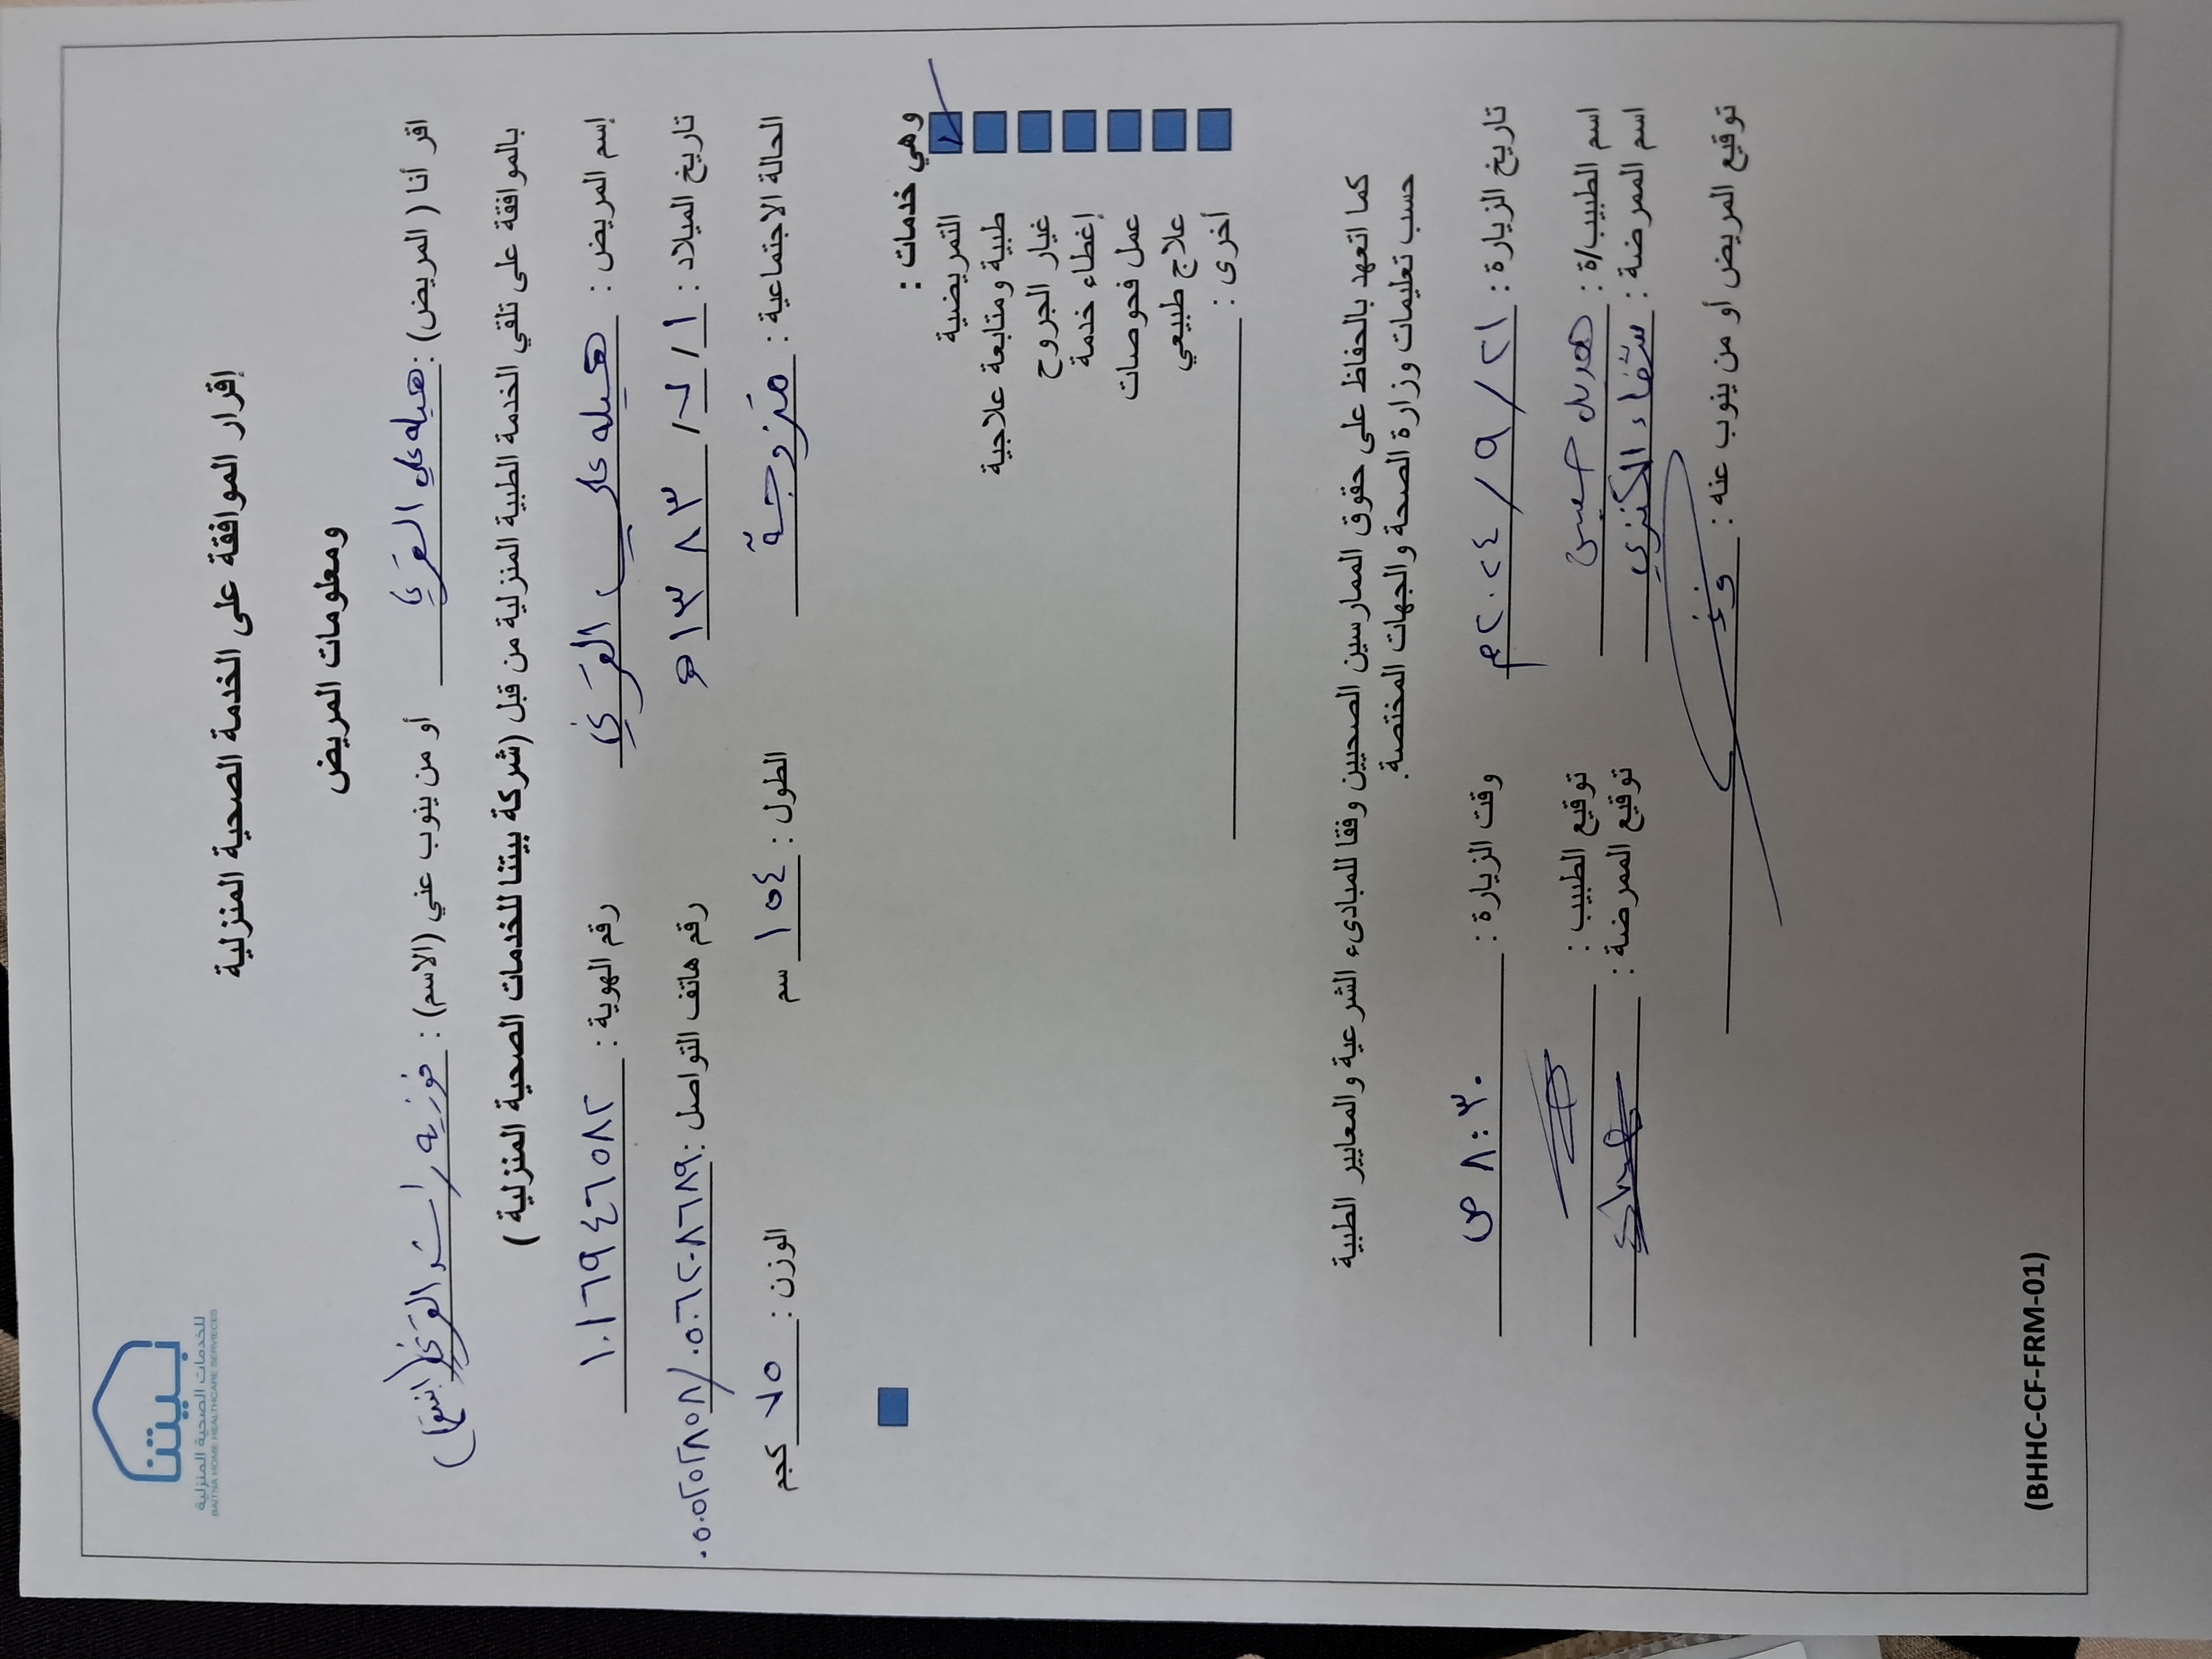 بيتنا
للخدمات الصحية المنزلية
BAITNA HOME HEALTHCARE SERVIECES
إقرار الموافقة على الخدمة الصحية المنزلية
ومعلومات المريض
اقر أنا ( المريض) : هيله علي أو من ينوب عني (الاسم) : فوزيه راشد
بالموافقة على تلقي الخدمة الطبية المنزلية من قبل (شركة بيتنا للخدمات الصحية المنزلية )
إسم المريض : هيله علي رقم الهوية : ١٠١٦٩٤٦٥٨٢
تاريخ الميلاد : ١ / ٧ / ١٣٨٣ هـ رقم هاتف التواصل : ٠٥٦٢٠٨٦٨٩ /
الحالة الاجتماعية : متزوجة الطول : ١٥٤ سم الوزن : ٧٥ كجم
وهي خدمات :
التمريضية
طبية ومتابعة علاجية
غيار الجروح
إغطاء خدمة
عمل فحوصات
علاج طبيعي
أخرى :
كما اتعهد بالحفاظ على حقوق الممارسين الصحيين وفقا للمبادىء الشرعية والمعايير الطبية
حسب تعليمات وزارة الصحة والجهات المختصة.
تاريخ الزيارة : ٢١ / ٩ / ٢٠٢٤ م وقت الزيارة : ٨:٣٠ ص
اسم الطبيب/ة : توقيع الطبيب :
اسم الممرضة : توقيع الممرضة :
توقيع المريض أو من ينوب عنه :
(BHHC-CF-FRM-01)